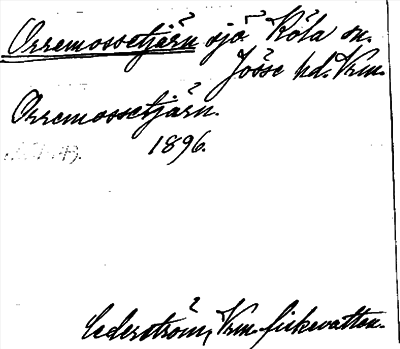 Orremossetjärn sjö Köla sn.
Jösse hd. Vrm.
Orremossetjärn.
1896.
Cederström, Vrm. fiskevatten.